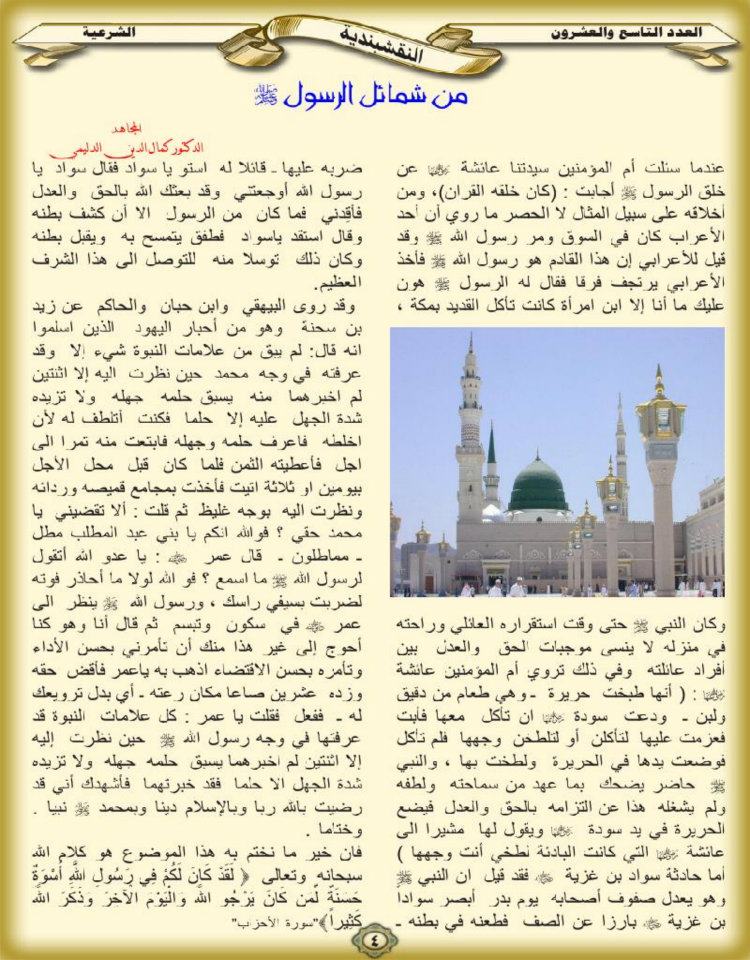 العدد التاسع والعشرون
النقشبندية
الشرعية
من شمائل الرسول ﷺ
المجاهد
الدكتور كمال الدين الدليمي
عندما سئلت أم المؤمنين سيدتنا عائشة رضي الله عنها عن
خلق الرسول ﷺ أجابت : (كان خلقه القران)، ومن
أخلاقه على سبيل المثال لا الحصر ما روي أن أحد
الأعراب كان في السوق ومر رسول الله ﷺ وقد
قيل للأعرابي إن هذا القادم هو رسول الله ﷺ فأخذ
الأعرابي يرتجف فرقا فقال له الرسول ﷺ هون
عليك ما أنا إلا ابن امرأة كانت تأكل القديد بمكة ،
وكان النبي ﷺ حتى وقت استقراره العائلي وراحته
في منزله لا ينسى موجبات الحق والعدل بين
أفراد عائلته وفي ذلك تروي أم المؤمنين عائشة
رضي الله عنها : ( أنها طبخت حريرة ـ وهي طعام من دقيق
ولبن ـ ودعت سودة رضي الله عنها ان تأكل معها فأبت
فعزمت عليها لتأكلن أو لتلطخن وجهها فلم تأكل
فوضعت يدها في الحريرة ولطخت بها ، والنبي
ﷺ حاضر يضحك بما عهد من سماحته ولطفه
ولم يشغله هذا عن التزامه بالحق والعدل فيضع
الحريرة في يد سودة رضي الله عنها ويقول لها مشيرا الى
عائشة رضي الله عنها التي كانت البادئة لطخي أنت وجهها )
أما حادثة سواد بن غزية رضي الله عنه فقد قيل ان النبي ﷺ
وهو يعدل صفوف أصحابه يوم بدر أبصر سوادا
بن غزية رضي الله عنه بارزا عن الصف فطعنه في بطنه ـ
ضربه عليها ـ قائلا له استو يا سواد فقال سواد يا
رسول الله أوجعتني وقد بعثك الله بالحق والعدل
فأقِدني فما كان من الرسول الا أن كشف بطنه
وقال استقد ياسواد فطفق يتمسح به ويقبل بطنه
وكان ذلك توسلا منه للتوصل الى هذا الشرف
العظيم.
وقد روى البيهقي وابن حبان والحاكم عن زيد
بن سحنة وهو من أحبار اليهود الذين اسلموا
انه قال: لم يبق من علامات النبوة شيء إلا وقد
عرفته في وجه محمد حين نظرت اليه إلا اثنتين
لم اخبرهما منه يسبق حلمه جهله ولا تزيده
شدة الجهل عليه إلا حلما فكنت أتلطف له لأن
اخلطه فاعرف حلمه وجهله فابتعت منه تمرا الى
اجل فأعطيته الثمن فلما كان قبل محل الأجل
بيومين او ثلاثة اتيت فأخذت بمجامع قميصه وردانه
ونظرت اليه بوجه غليظ ثم قلت : ألا تقضيني يا
محمد حقي ؟ فوالله انكم يا بني عبد المطلب مطل
ـ مماطلون ـ قال عمر رضي الله عنه : يا عدو الله أتقول
لرسول الله ﷺ ما اسمع ؟ فو الله لولا ما أحاذر فوته
لضربت بسيفي راسك ، ورسول الله ﷺ ينظر الى
عمر رضي الله عنه في سكون وتبسم ثم قال أنا وهو كنا
أحوج إلى غير هذا منك أن تأمرني بحسن الأداء
وتأمره بحسن الاقتضاء اذهب به ياعمر فأقض حقه
وزده عشرين صاعا مكان رعته ـ أي بدل ترويعك
له ـ ففعل فقلت يا عمر : كل علامات النبوة قد
عرفتها في وجه رسول الله ﷺ حين نظرت إليه
إلا اثنتين لم اخبرهما يسبق حلمه جهله ولا تزيده
شدة الجهل الا حلما فقد خبرتهما فأشهدك أني قد
رضيت بالله ربا وبالإسلام دينا وبمحمد ﷺ نبيا .
وختاما .
فان خير ما نختم به هذا الموضوع هو كلام الله
سبحانه وتعالى ﴿ لَقَدْ كَانَ لَكُمْ فِي رَسُولِ اللَّهِ أُسْوَةٌ
حَسَنَةٌ لِّمَن كَانَ يَرْجُو اللَّهَ وَالْيَوْمَ الْآخِرَ وَذَكَرَ اللَّهَ
كَثِيراً﴾"سورة الأحزاب"
٤